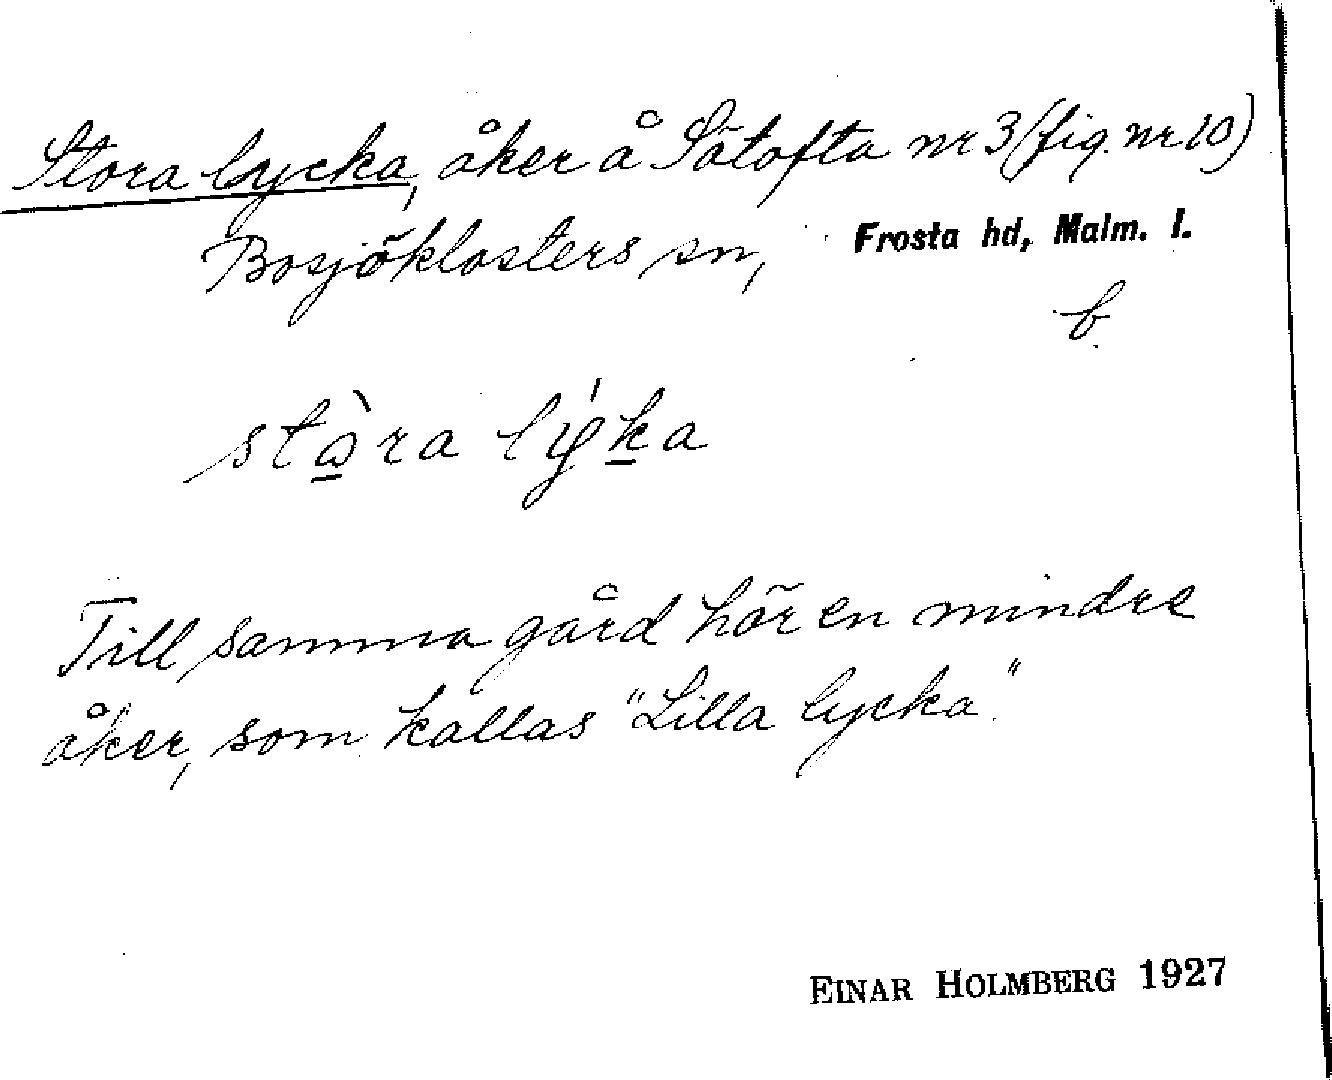 Stora lycka, åker å Sätofta nr 3 (fig. nr 10)
Bosjöklosters sn, Frosta hd, Malm. l.
b.
stàra lýka
Till samma gård hör en mindre
åker, som kallas "Lilla lycka".
EINAR HOLMBERG 1927